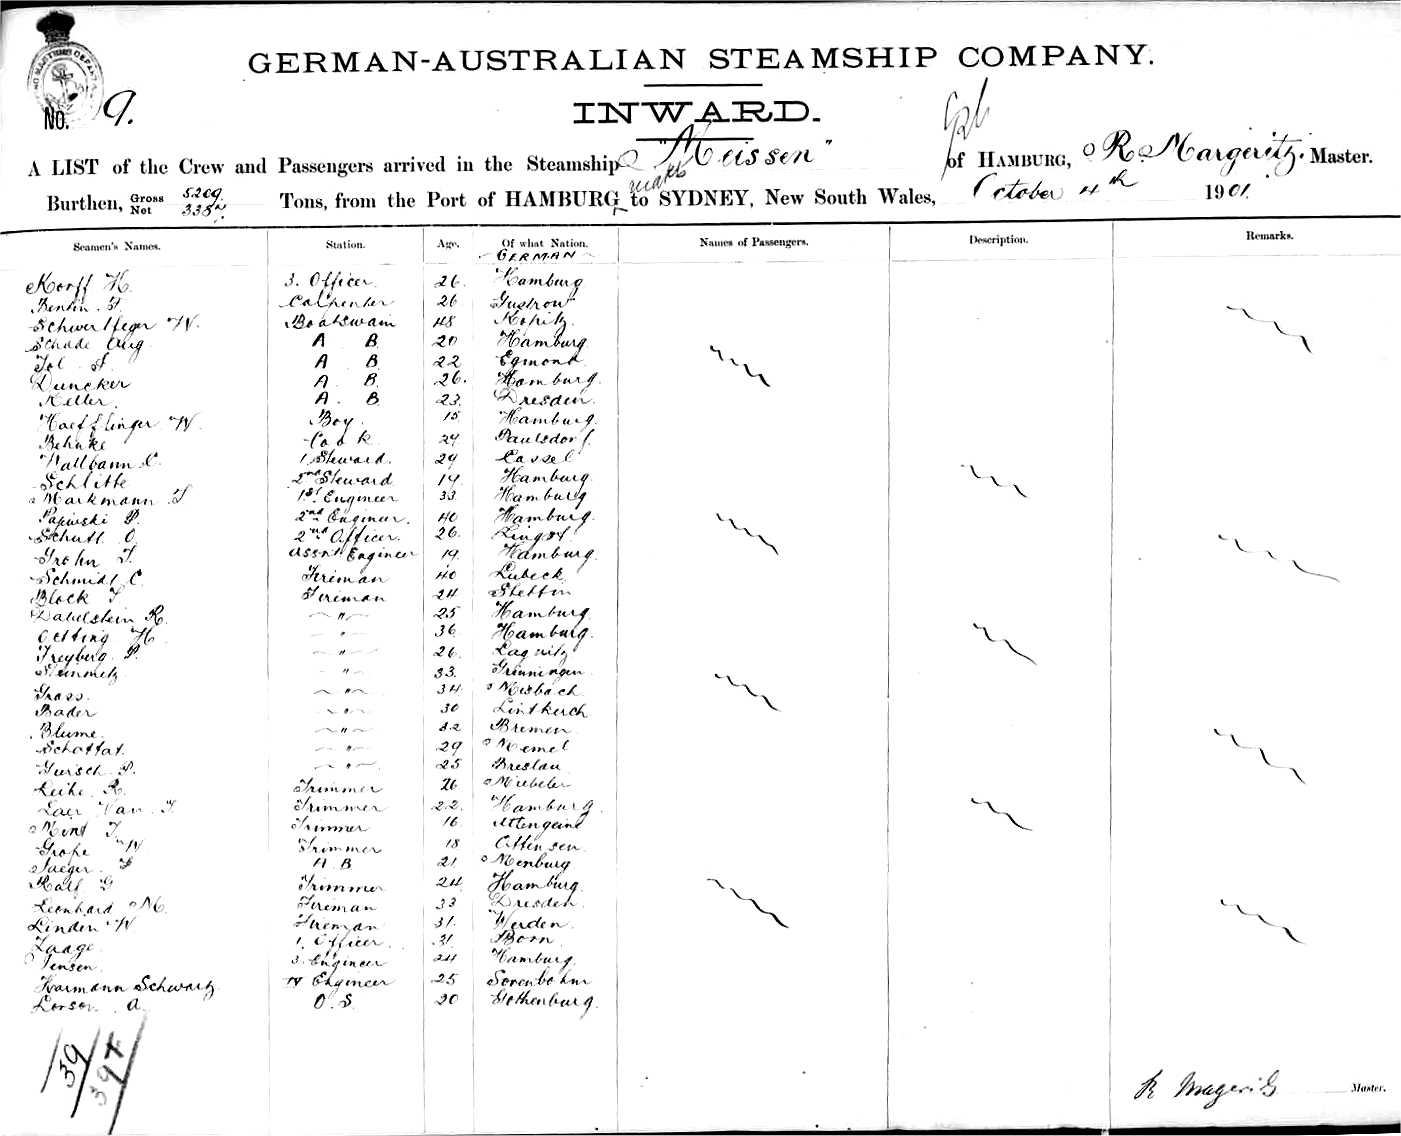 GERMAN-AUSTRALIAN STEAMSHIP COMPANY.
No. 9.
INWARD.
A LIST of the Crew and Passengers arrived in the Steamship "Meissen" of HAMBURG, R. Margeritz. Master.
Burthen, Gross 5209. Net Tons, from the Port of HAMBURG to SYDNEY, New South Wales, October 4th 1901.
Seamen's Names. Station. Age. Of what Nation. Names of Passengers. Description. Remarks.
GERMAN
Korff H. 3. Officer 26. Hamburg
Carpenter 26 Gustrow
Schwertfeger W. Boatswain 48 Kopitz.
Schade Aug. A B 20 Hamburg
Tol A B 22 Egmond
Duncker A. B. 26. Hamburg.
Keller. A. B 23. Dresden.
Haefflinger W. Boy. 15 Hamburg.
Behnke Cook 29 Paulsdorf.
Wallbaum C. 1. Steward. 29 Cassel
Schlitte 2nd Steward 19. Hamburg
Markmann 1st Engineer 33 Hamburg
P. 2nd Engineer. 40 Hamburg.
Schutt O. 2nd Officer. 26.
Grohn Assnt Engineer 19. Hamburg.
Schmidt C. Fireman 40 Lubeck
Block Fireman 24 Stettin
Dahlstein R. " 25 Hamburg.
Oetting H. " 36 Hamburg.
Freyberg P. " 26.
Steinmetz " 33.
Grass. " 34 Misbach
Bader " 30 Lintkerch
Blume. " 32 Bremen
Schattat. " 29 Memel
" 25 Breslau
Leihe R. Trimmer 26
Laer Van Trimmer 22. Hamburg.
Mont Trimmer 16
Grope W Trimmer 18 Ottensen.
Jaeger A B 21. Menburg
Ralf G Trimmer 24 Hamburg.
Leonhard M. Fireman 33 Dresden.
Linden W Fireman 31. Werden.
Zaage 1. Officer. 31. Born
Jensen. 3. Engineer 24 Hamburg.
Harmann Schwartz 4 Engineer 25 Sorenbohm
A. O. S. 20 Gothenburg.
39
397
R Margeritz Master.